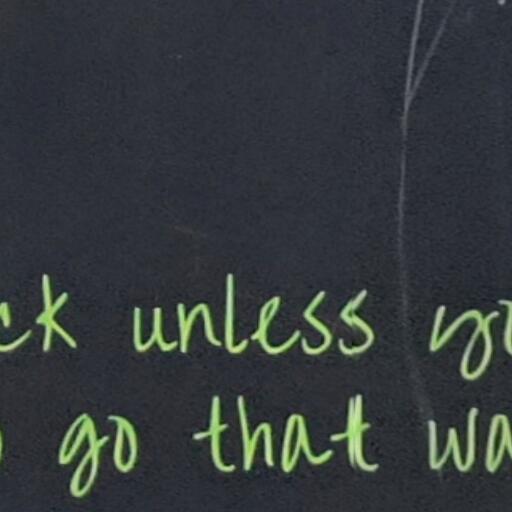 ck unless yo
go that wa